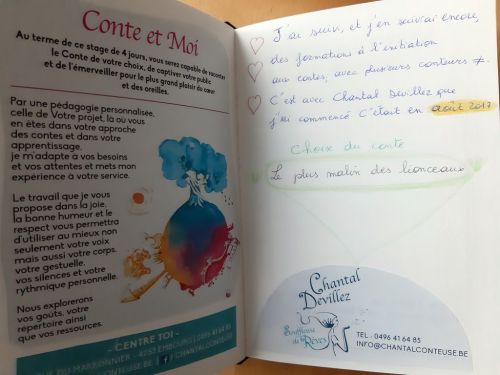 Conte et Moi
Au terme de ce stage de 4 jours, vous serez capable de raconter
le Conte de votre choix, de captiver votre public
et de l'émerveiller pour le plus grand plaisir du cœur
et des oreilles.
Par une pédagogie personnalisée,
celle de Votre projet, là où vous
en êtes dans votre approche
des contes et dans votre
apprentissage,
je m'adapte à vos besoins
et vos attentes et mets mon
expérience à votre service.
Le travail que je vous
propose dans la joie,
la bonne humeur et le
respect vous permettra
d'utiliser au mieux non
seulement votre voix
mais aussi votre corps,
votre gestuelle,
vos silences et votre
rythmique personnelle.
Nous explorerons
vos goûts, votre
répertoire ainsi
que vos ressources.
- CENTRE TOI -
MARRONNIER - 4053 EMBOURG | 0496 41 64 85
CONTEUSE.BE | CHANTALCONTEUSE
J'ai suivi, et j'en suivrai encore,
des formations à l'initiation
aux contes, avec plusieurs conteurs ≠.
C'est avec Chantal Devillez que
j'ai commencé C'était en août 2017
Choix du conte
Le plus malin des lionceaux
Chantal
Devillez
Souffleuse
de Rêves
TEL. 0496 41 64 85
INFO@CHANTALCONTEUSE.BE